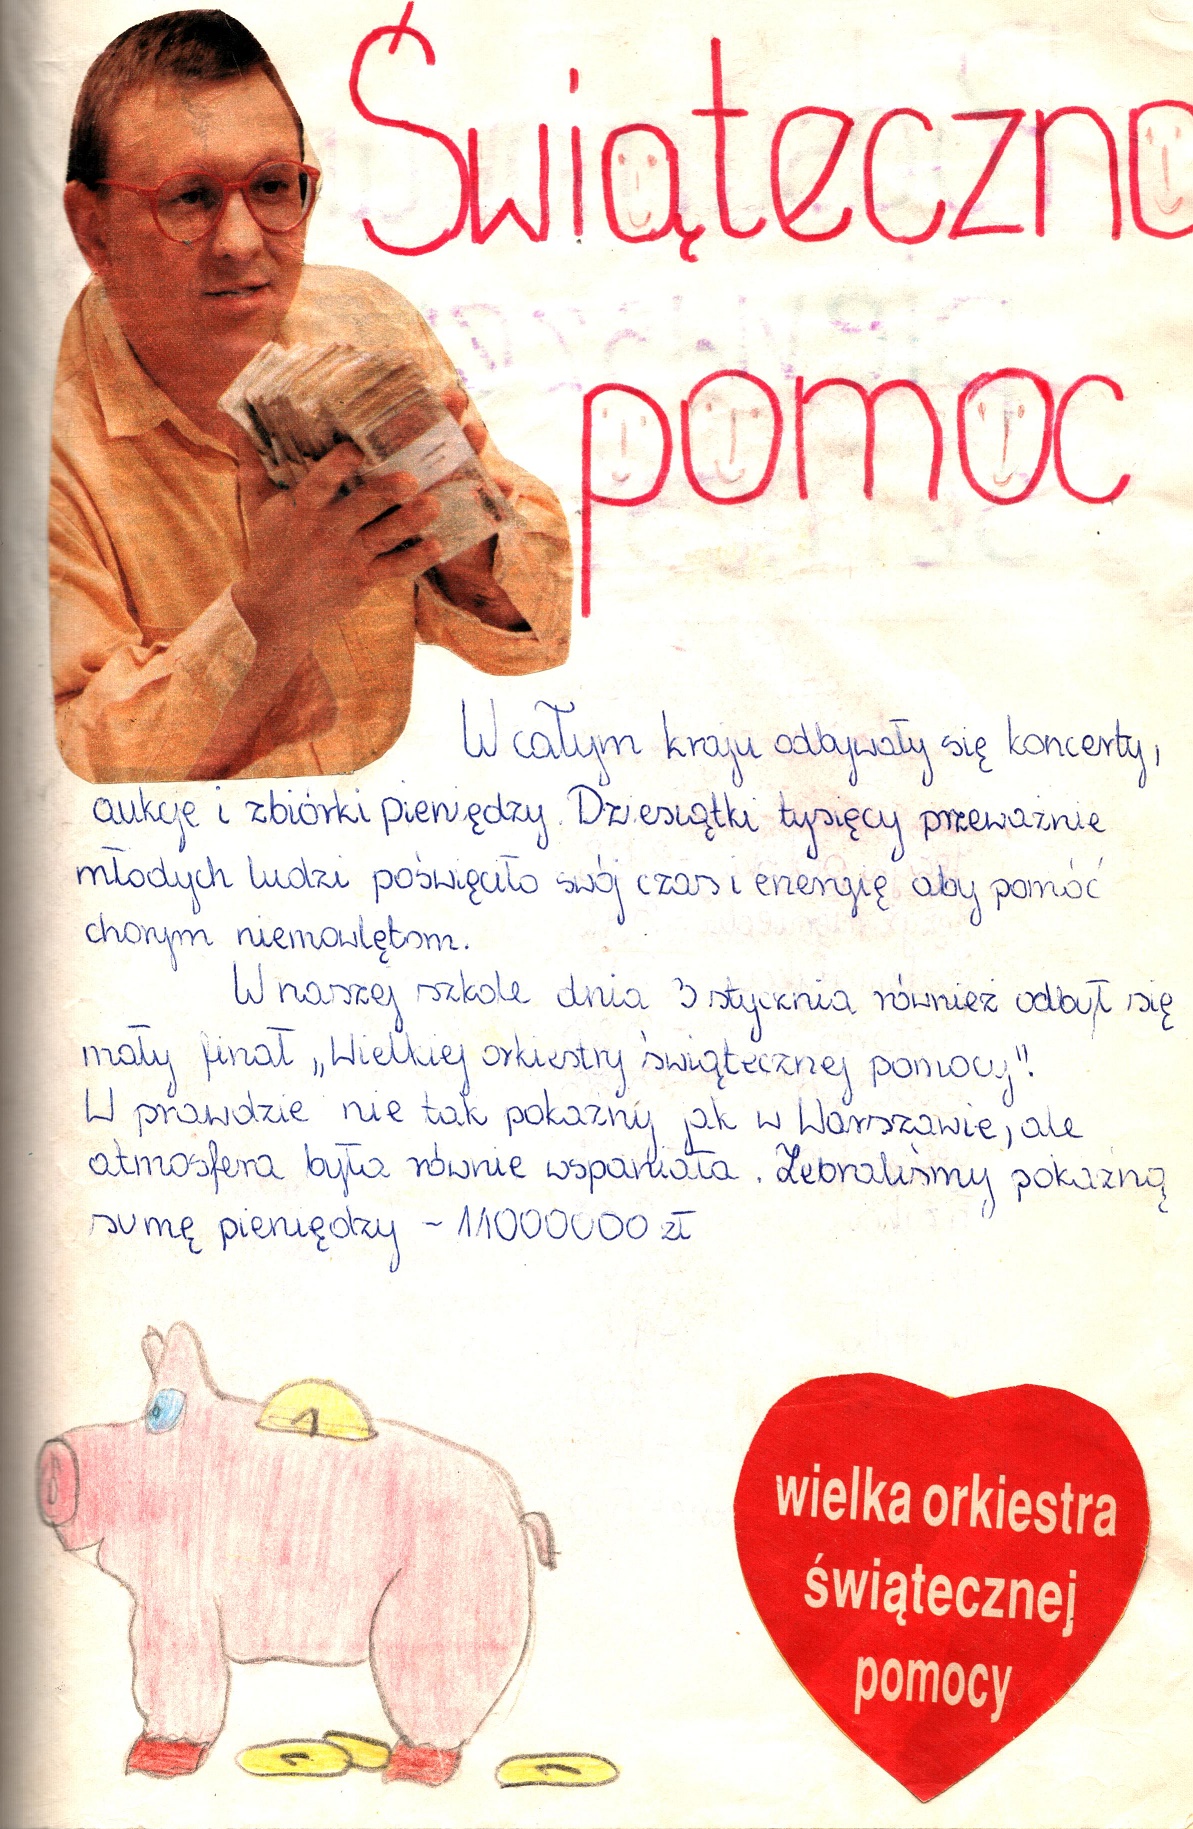 Świąteczna
pomoc
W całym kraju odbywały się koncerty,
aukcje i zbiórki pieniędzy. Dziesiątki tysięcy przeważnie
młodych ludzi poświęciło swój czas i energię aby pomóc
chorym niemowlętom.
W naszej szkole dnia 3 stycznia również odbył się
mały finał „Wielkiej orkiestry świątecznej pomocy".
W prawdzie nie tak pokaźny jak w Warszawie, ale
atmosfera była równie wspaniała. Zebraliśmy pokaźną
sumę pieniędzy - 11000000 zł
1
wielka orkiestra
świątecznej
pomocy